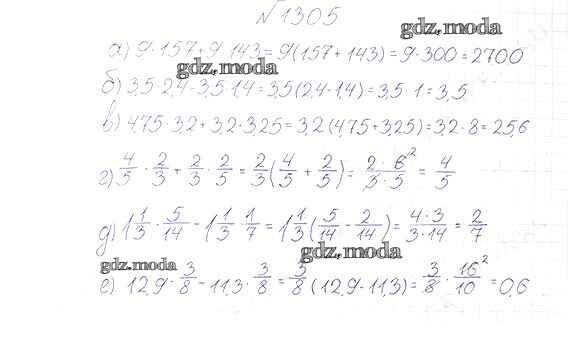 №1305
gdz.moda
а) 9·157+9·143=9(157+143)=9·300=2700
gdz.moda
б) 3,5·2,4-3,5·1,4=3,5(2,4-1,4)=3,5·1=3,5
в) 4,75·3,2+3,2·3,25=3,2(4,75+3,25)=3,2·8=25,6
г) 4/5 · 2/3 + 2/3 · 2/5 = 2/3 (4/5 + 2/5) = 2·6²/3·5 = 4/5
д) 1 1/3 · 5/14 - 1 1/3 · 1/7 = 1 1/3 (5/14 - 2/14) = 4·3/3·14 = 2/7
gdz.moda
gdz.moda
е) 12,9 · 3/8 - 11,3 · 3/8 = 3/8 (12,9-11,3) = 3/8 · 16²/10 = 0,6